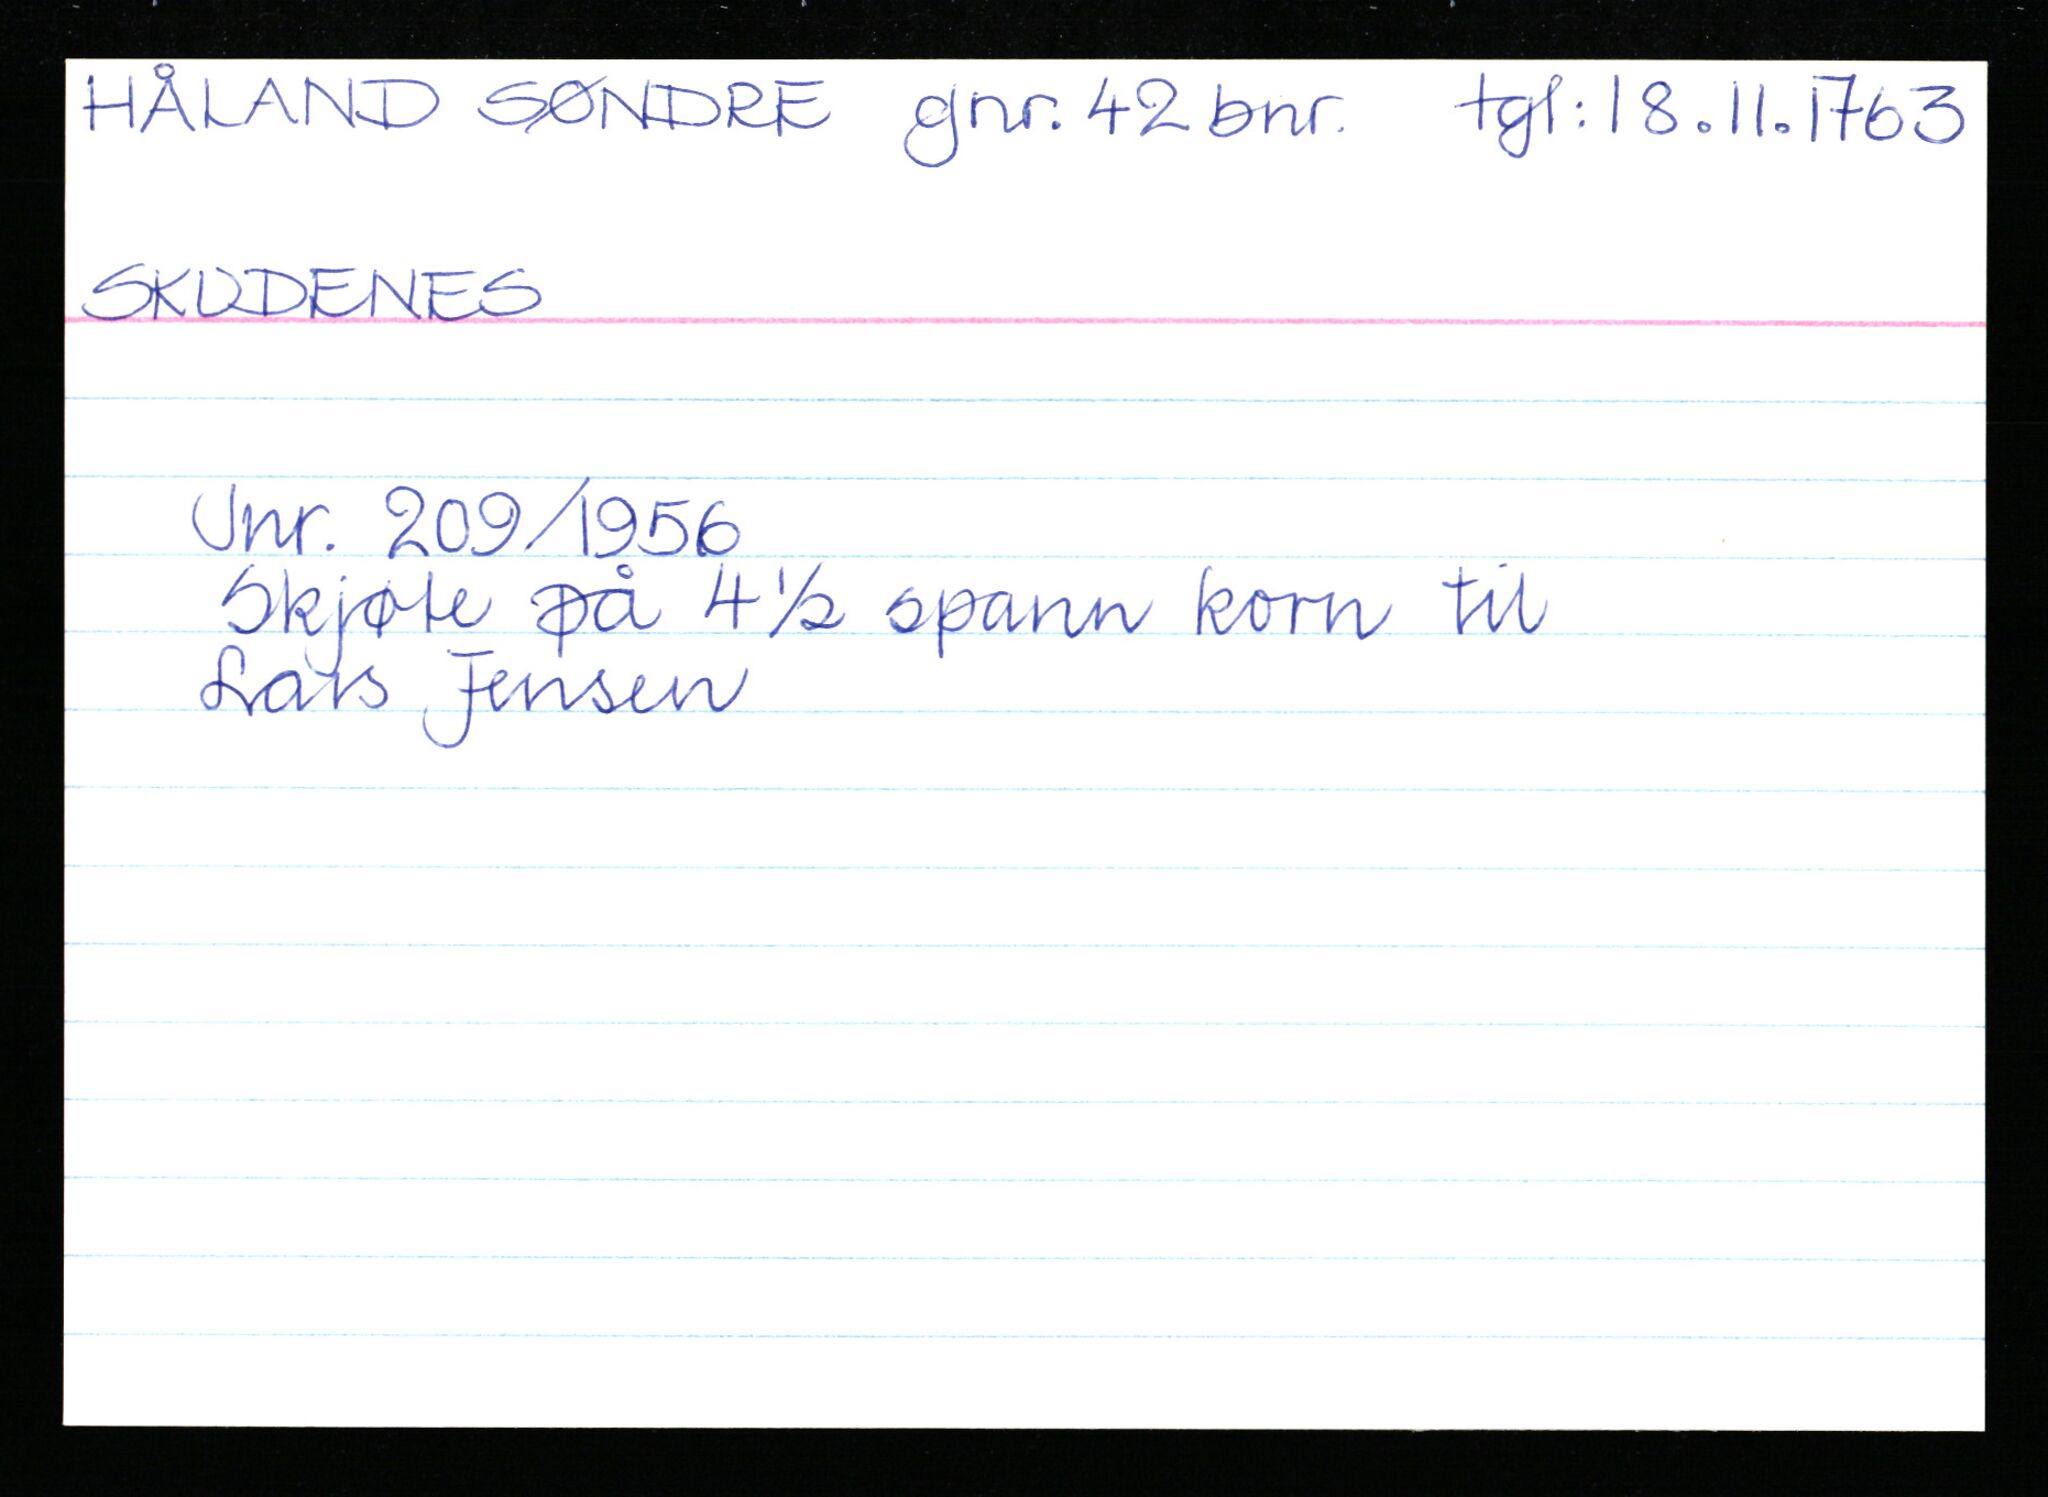 HÅLAND SØNDRE gnr. 42 bnr. tgl: 18.11.1763
SKUDENES
Jnr. 209/1956
Skjøte på 4 1/2 spann korn til
Lars Jensen